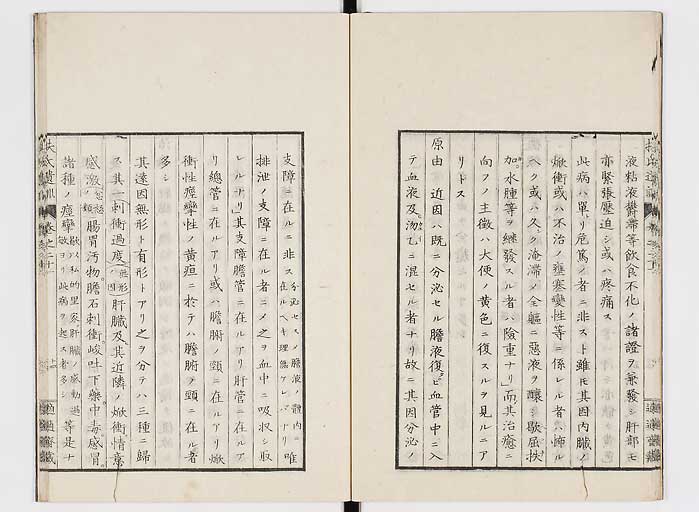 液粘液欝滯等飲食不化ノ諸證ヲ兼發シ肝部モ
亦緊張壓迫シ或ハ疼痛ス
此病ハ單リ危篤ノ者ニ非スト雖モ其因内臟ノ
焮衝或ハ不治ノ壅塞變性等ニ係レル者ハ怖ル
ヘク或ハ久ク淹滯シ全軀ニ惡液ヲ釀シ歇屈扶
加水腫等ヲ繼發スル者ハ險重ナリ而其治癒ニ
向フノ主徴ハ大便ノ黄色ニ復スルヲ見ルニア
リトス
原由 近因ハ既ニ分泌セル膽液復タヒ血管中ニ入
テ血液及ニ混セル者ナリ故ニ其因分泌ノ
支障ニ在ルニ非ス分泌セスノ膽液ノ體内ニ在ルヘキ理無ケレバナリ唯
排泄ノ支障ニ在ル者ニメ之ヲ血中ニ吸收シ取
レルナリ其支障膽管ニ在ルアリ肝管ニ在ルア
リ總管ニ在ルアリ或ハ膽腑ノ頸ニ在ルアリ焮
衝性痙攣性ノ黄疸ニ於テハ膽腑ヲ頸ニ在ル者
多シ
其遠因無形ト有形トアリ之ヲ分テハ三種ニ歸
ス其一刺衝過度無形ノ因肝臟及其近隣ノ焮衝情意
感激怒ノ類腸胃汚物膽石刺衝峻吐下藥中毒感冒
諸種ノ痙攣歇ヨリ此病ヲ起ス者多シ等是ナ
扶氏遺訓 卷之二十
適適齋藏